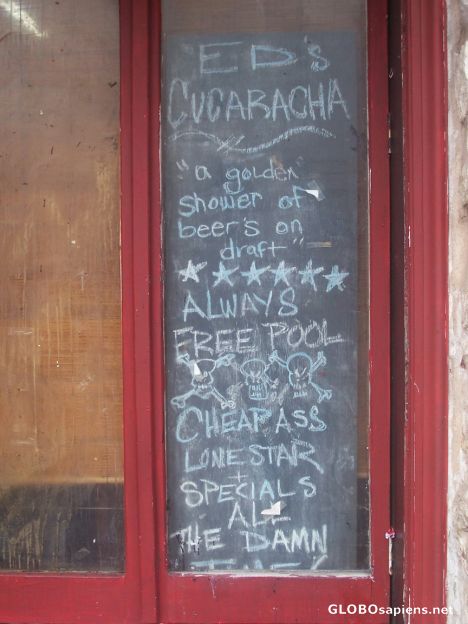 "ED's
CUCARACHA
"a golden
shower of
beer's on
draft"
ALWAYS
FREE POOL
CHEAP ASS
LONE STAR
+
SPECIALS
ALL
THE DAMN
GLOBOsapiens.net